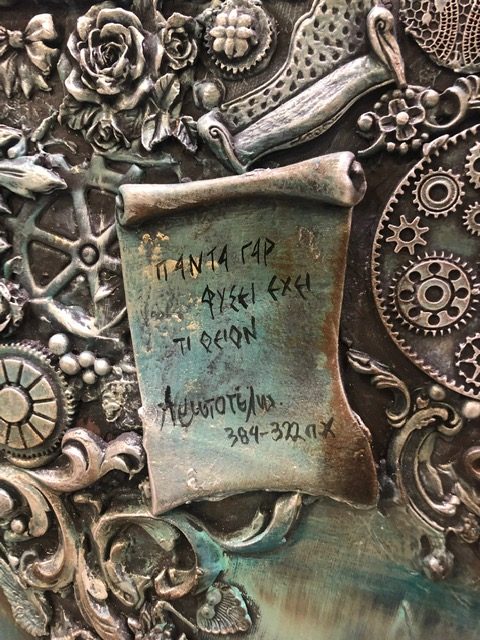 ΠΑΝΤΑ ΓΑΡ
ΦΥΣΕΙ ΕΧΕΙ
ΤΙ ΘΕΙΟΝ
Αριστοτέλης.
384-322 π Χ